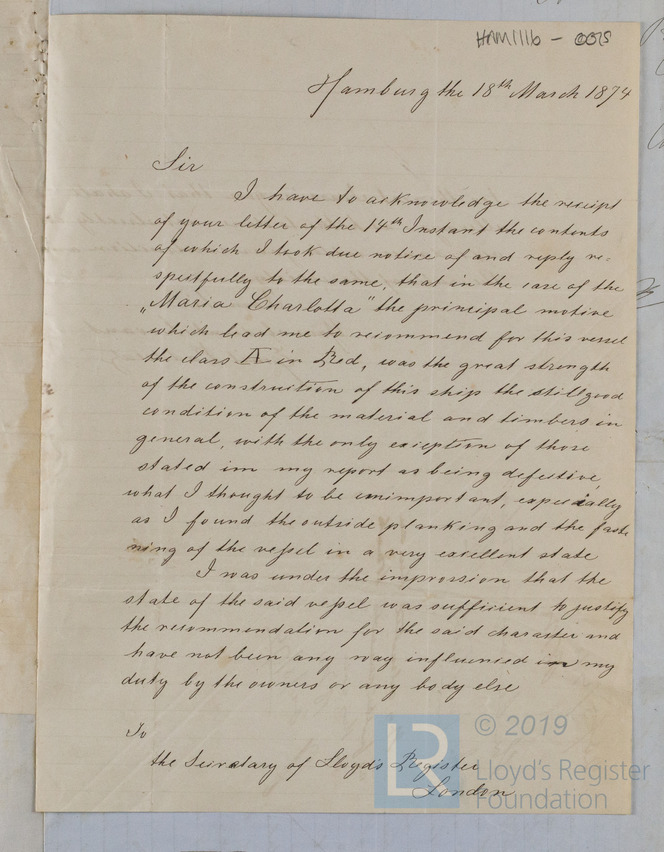 HAM1116 - 0075
Hamburg the 18th March 1874
Sir
I have to acknowledge the receipt
of your letter of the 14th Instant the contents
of which I took due notice of and reply re-
spectfully to the same, that in the case of the
„Maria Charlotta" the principal motive
which lead me to recommend for this vessel
the class A in Red, was the great strength
of the construction of this ship the still good
condition of the material and timbers in
general, with the only exception of those
stated in my report as being defective,
what I thought to be unimportant, especially
as I found the outside planking and the faste
ning of the vessel in a very excellent state
I was under the impression that the
state of the said vessel was sufficient to justify
the recommendation for the said character and
have not been any way influenced in my
duty by the owners or any body else
To
the Secretary of Lloyd's Register
London
LR
© 2019
Lloyd's Register
Foundation